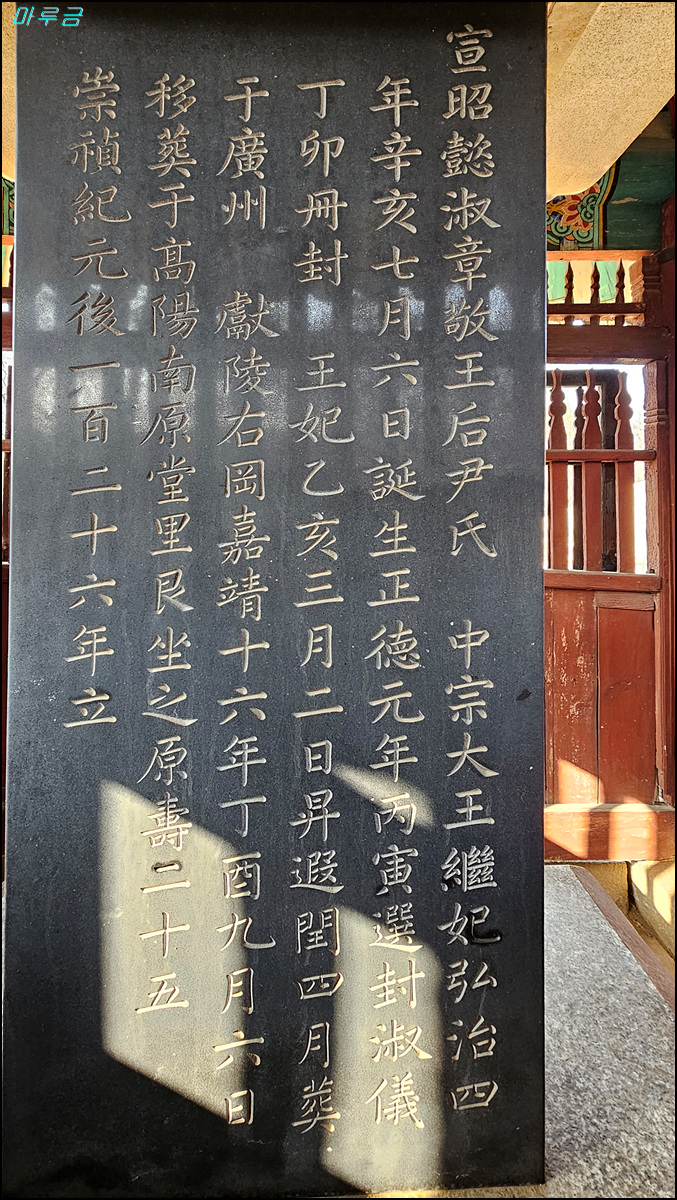 마루금
宣昭懿淑章敬王后尹氏 中宗大王繼妃弘治四
年辛亥七月六日誕生正德元年丙寅選封淑儀
丁卯冊封 王妃乙亥三月二日昇遐閏四月葬
于廣州 獻陵右岡嘉靖十六年丁酉九月六日
移葬于高陽南原堂里艮坐之原壽二十五
崇禎紀元後一百二十六年立